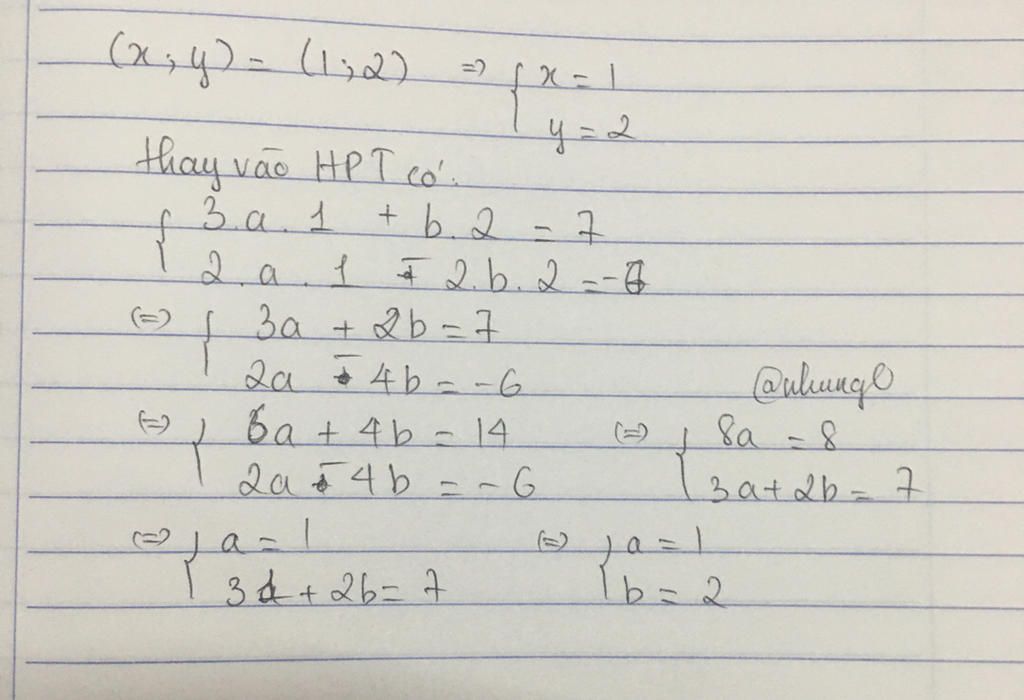 (x; y) = (1; 2) => { x = 1
y = 2
thay vào HPT có:
{ 3.a.1 + b.2 = 7
2.a.1 - 2.b.2 = -6
<=> { 3a + 2b = 7
2a - 4b = -6
@nhungl
<=> { 6a + 4b = 14 <=> { 8a = 8
2a - 4b = -6 3a + 2b = 7
<=> { a = 1 <=> { a = 1
3.1 + 2b = 7 b = 2